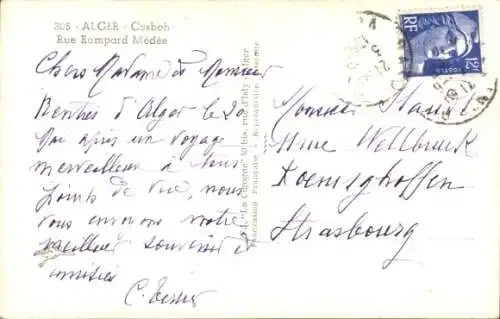 305 - ALGER - Casbah
Rue Rampard Médée
Chers Madame et Monsieur
Rentrés d'Alger le 20
Mai après un voyage
merveilleux à tous
points de vue, nous
vous envoyons notre
meilleur souvenir et
amitiés
C.
"La Cigogne" rue d'Isly - Alger
Fabrication Française - Reproduction Interdite
RF
POSTES
Monsieur
Mme Wellbruck
Koenigshoffen
Strasbourg